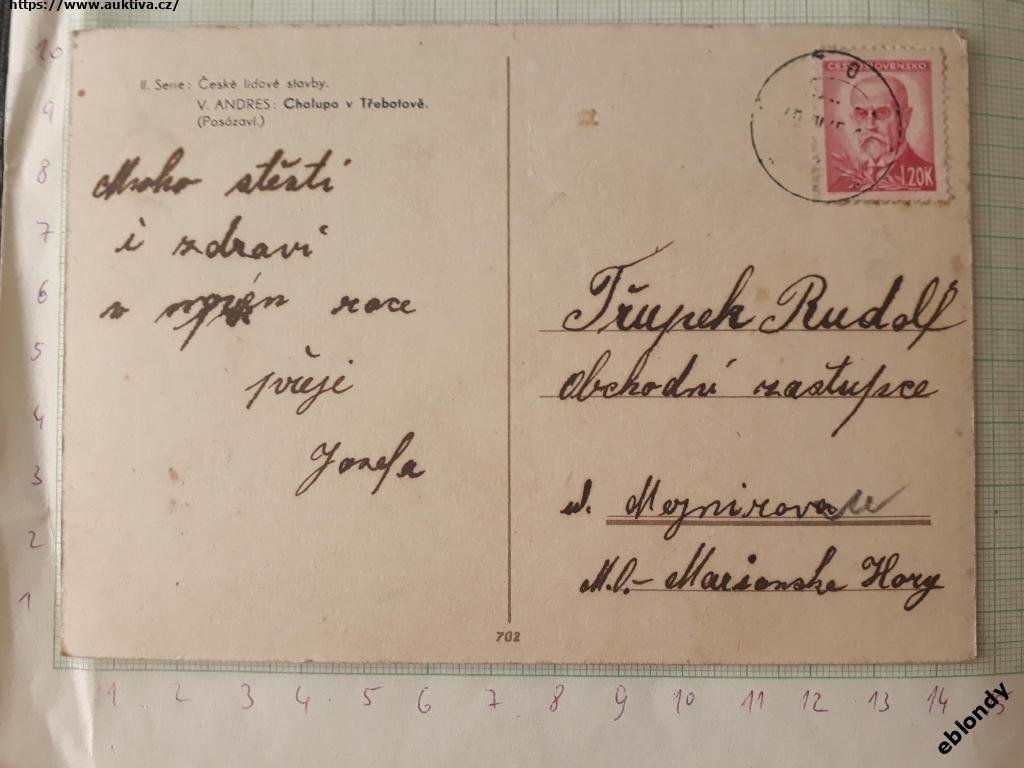 https://www.auktiva.cz/
II. Serie: České lidové stavby.
V. ANDRES: Chalupa v Třebatově.
(Posázaví.)
Mnoho štěstí
i zdraví
v roce
přeje
Jozefa
ČESKOSLOVENSKO
1.20K
Třupek Rudolf
Obchodní zastupce
ul. Mojnirova
M.O.- Marianske Hory
702
10
9
8
7
6
5
4
3
2
1
1 2 3 4 5 6 7 8 9 10 11 12 13 14 15
eblondy